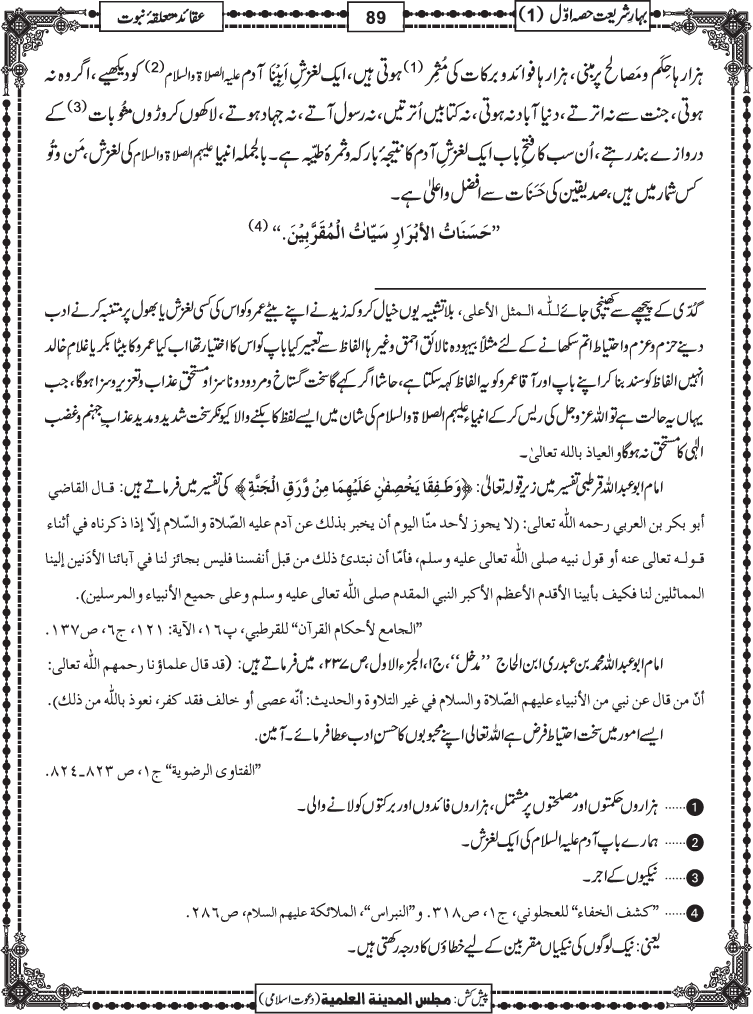 بہارِ شریعت حصہ اوّل (1)
89
عقائد متعلقۂ نبوت
ہزارہا حِکَم و مَصالح پر مبنی، ہزارہا فوائد و برکات کی مُثمِر (1) ہوتی ہیں، ایک لغزشِ اَبِیْنَا آدم علیہ الصلاۃ والسلام (2) کو دیکھیے، اگر وہ نہ
ہوتی، جنت سے نہ اترتے، دنیا آباد نہ ہوتی، نہ کتابیں اُترتیں، نہ رسول آتے، نہ جہاد ہوتے، لاکھوں کروڑوں مثُوبات (3) کے
دروازے بند رہتے، اُن سب کا فتحِ باب ایک لغزشِ آدم کا نتیجۂ بارکہ و ثمرۂ طیّبہ ہے۔ بالجملہ انبیا علیہم الصلاۃ والسلام کی لغزش، مَن و تُو
کس شمار میں ہیں، صدیقین کی حَسَنَات سے افضل و اعلیٰ ہے۔
”حَسَنَاتُ الأبْرَارِ سَیِّاٰتُ الْمُقَرَّبِیْنَ.“ (4)
گدّی کے پیچھے سے کھینچی جائے للّٰه المثل الأعلی، بلا تشبیہ یوں خیال کرو کہ زید نے اپنے بیٹے عمرو کو اس کی کسی لغزش یا بھول پر متنبہ کرنے ادب
دینے حزم و عزم و احتیاط اتم سکھانے کے لئے مثلاً بیہودہ نالائق احمق وغیرہا الفاظ سے تعبیر کیا باپ کو اس کا اختیار تھا اب کیا عمرو کا بیٹا بکر یا غلام خالد
انہیں الفاظ کو سند بنا کر اپنے باپ اور آقا عمرو کو یہ الفاظ کہہ سکتا ہے، حاشا اگر کہے گا سخت گستاخ و مردود و ناسزا و مستحق عذاب و تعزیر و سزا ہوگا، جب
یہاں یہ حالت ہے تو اللہ عزوجل کی ریس کر کے انبیاء علیہم الصلاۃ والسلام کی شان میں ایسے لفظ کا بکنے والا کیونکر سخت شدید و مدید عذاب جہنم و غضب
الٰہی کا مستحق نہ ہوگا والعیاذ باللہ تعالیٰ۔
امام ابو عبد اللہ قرطبی تفسیر میں زیرِ قولہ تعالیٰ: ﴿وَطَفِقَا یَخْصِفٰنِ عَلَیْهِمَا مِنْ وَّرَقِ الْجَنَّةِ﴾ کی تفسیر میں فرماتے ہیں: قال القاضي
أبو بكر بن العربي رحمه اللّٰه تعالی: (لا یجوز لأحد منّا الیوم أن یخبر بذلك عن آدم علیه الصّلاة والسّلام إلّا إذا ذکرناه في أثناء
قولـه تعالی عنه أو قول نبیه صلی اللّٰه تعالی علیه وسلم، فأمّا أن نبتدئ ذلك من قبل أنفسنا فلیس بجائز لنا في آبائنا الأدَنین إلینا
المماثلین لنا فکیف بأبینا الأقدم الأعظم الأکبر النبي المقدم صلی اللّٰه تعالی علیه وسلم وعلی جمیع الأنبیاء والمرسلین).
”الجامع لأحکام القرآن“ للقرطبي، پ١٦، الآیة: ١٢١، ج٦، ص١٣٧.
امام ابو عبد اللہ محمد بن عبدری ابن الحاج ’’مدخل‘‘، ج۱، الجزء الاول، ص۲۳۷، میں فرماتے ہیں: (قد قال علماؤنا رحمهم اللّٰه تعالی:
أنّ من قال عن نبي من الأنبیاء علیهم الصّلاة والسلام في غیر التلاوة والحدیث: أنّه عصی أو خالف فقد کفر، نعوذ باللّٰه من ذلك).
ایسے امور میں سخت احتیاط فرض ہے اللہ تعالی اپنے محبوبوں کا حسنِ ادب عطا فرمائے۔ آمین.
”الفتاوی الرضویة“ ج١، ص ٨٢٣ـ٨٢٤.
1 ...... ہزاروں حکمتوں اور مصلحتوں پر مشتمل، ہزاروں فائدوں اور برکتوں کو لانے والی۔
2 ...... ہمارے باپ آدم علیہ السلام کی ایک لغزش۔
3 ...... نیکیوں کے اجر۔
4 ...... ”کشف الخفاء“ للعجلوني، ج١، ص٣١٨. و”النبراس“، الملائکة علیهم السلام، ص٢٨٦.
یعنی: نیک لوگوں کی نیکیاں مقربین کے لیے خطاؤں کا درجہ رکھتی ہیں۔
پیش کش: مجلس المدینة العلمیة (دعوت اسلامی)